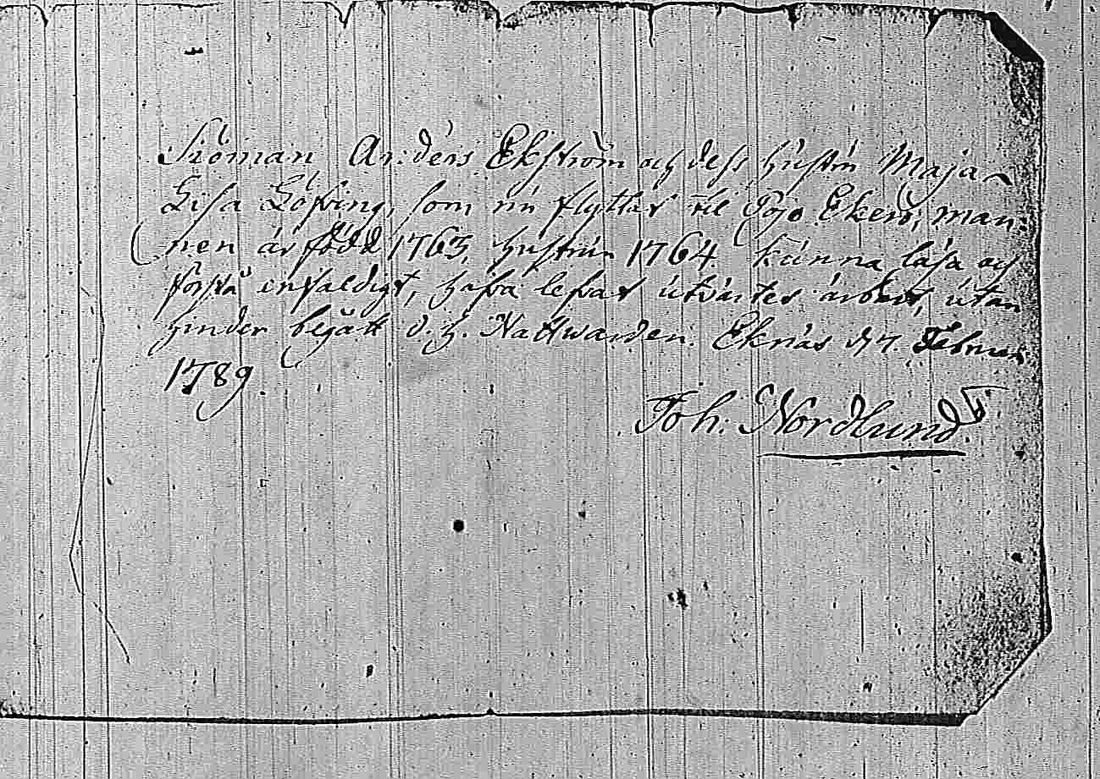 Siöman Anders Ekström och dess hustru Maja
Lisa Löfving, som nu flyttar til Pojo Ekerö, man-
nen är född 1763, hustrun 1764 kunna läsa och
förstå enfaldigt, hafva lefvat utvärtes ärbart, utan
hinder begått d. h. Nattwarden. Eknäs d 7 Februar
1789.
Joh. Nordlund